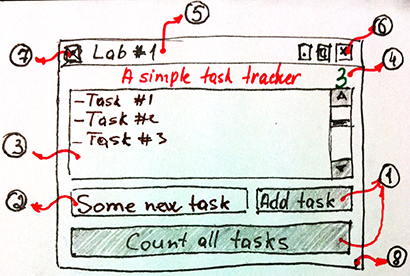 5
6
7 Lab #1
4
A simple task tracker 3
-Task #1
-Task #2
-Task #3
3
2 Some new task Add task 1
Count all tasks
8